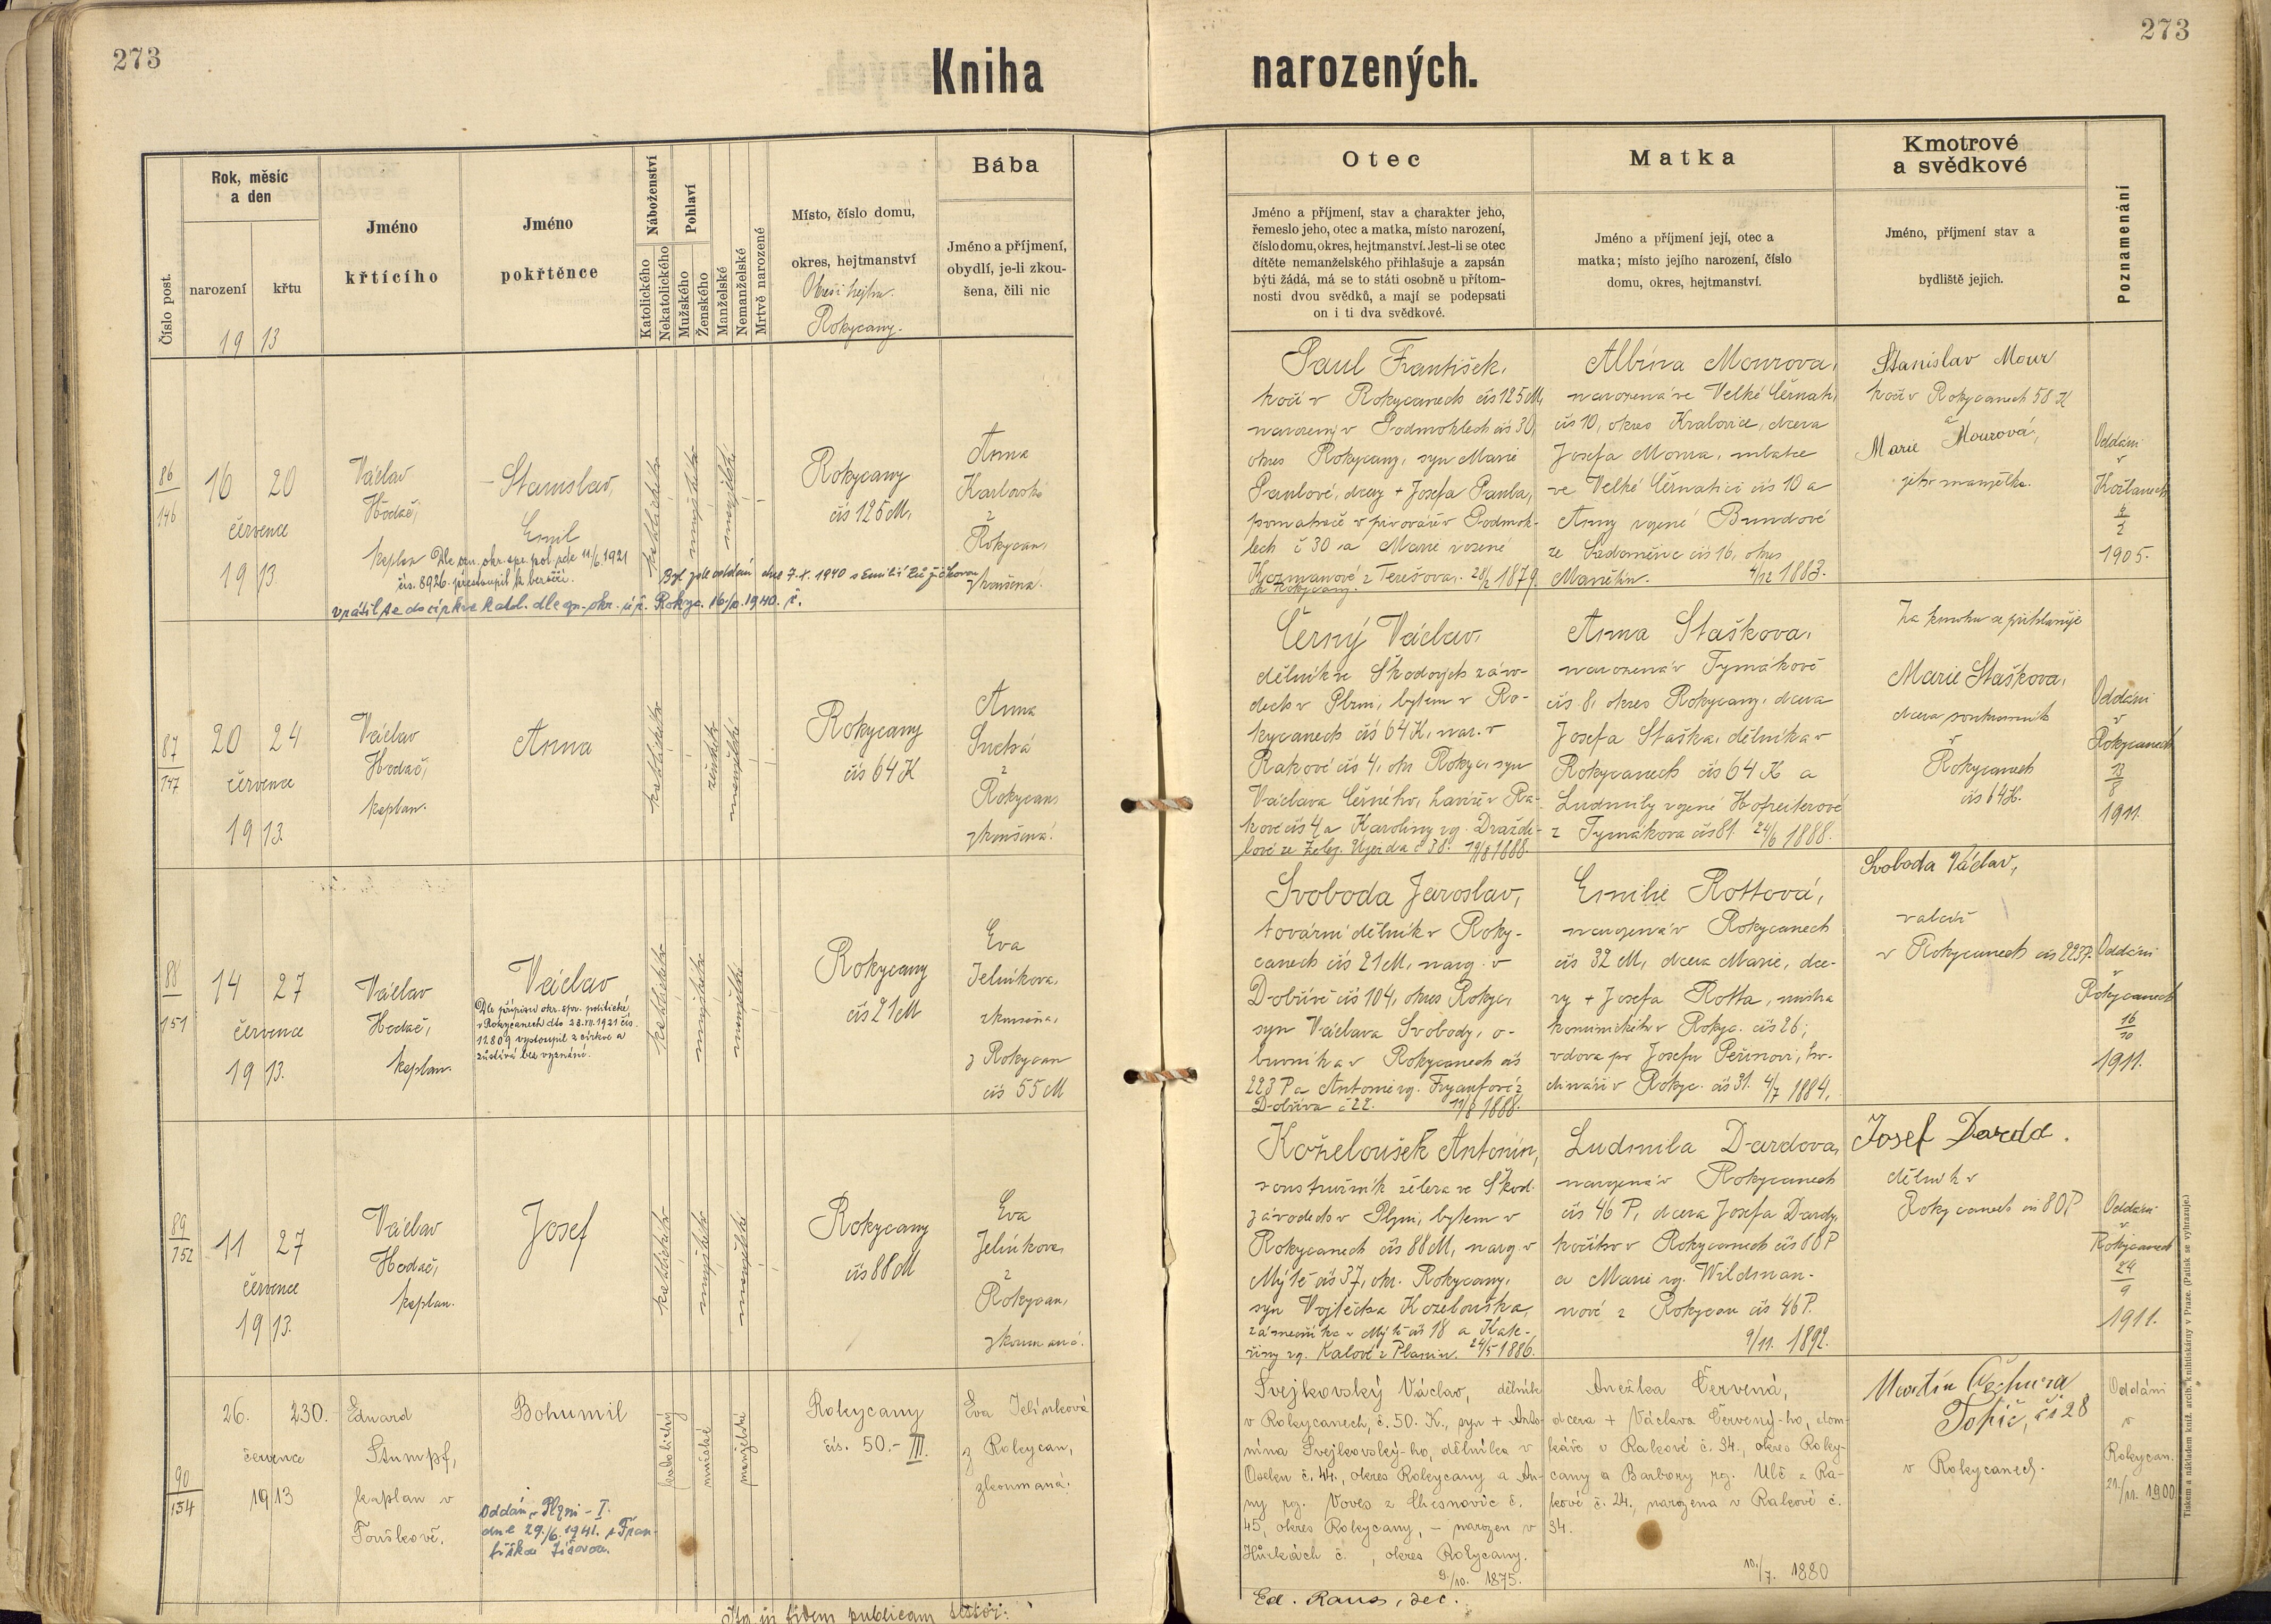 273
273
Kniha narozených.
Číslo post.
Rok, měsíc
a den
narození
křtu
19 13
Jméno
křtícího
Jméno
pokřtěnce
Náboženství
Katolického
Nekatolického
Pohlaví
Mužského
Ženského
Manželské
Nemanželské
Mrtvě narozené
Místo, číslo domu,
okres, hejtmanství
Rokycany.
Bába
Jméno a příjmení,
obydlí, je-li zkou-
šena, čili nic
Otec
Jméno a příjmení, stav a charakter jeho,
řemeslo jeho, otec a matka, místo narození,
číslo domu, okres, hejtmanství. Jest-li se otec
dítěte nemanželského přihlašuje a zapsán
býti žádá, má se to státi osobně u přítom-
nosti dvou svědků, a mají se podepsati
on i ti dva svědkové.
Matka
Jméno a příjmení její, otec a
matka; místo jejího narození, číslo
domu, okres, hejtmanství.
Kmotrové
a svědkové
Jméno, příjmení stav a
bydliště jejich.
Poznamenání
86
146
16 20
července
19 13.
Václav
Hodač,
kaplan
Stanislav,
Emil
Dle ozn. okr. spr. pol. zde 11/6. 1921
čís. 8926. přestoupil k
Byl zde oddán dne 7.X. 1940 s Emilií
vrátil se do církve katol. dle ozn. okr. úř. Rokyc. 16/10. 1940. č.
katolického
mužského
manželské
Rokycany
čís 125 M,
Anna
Karlovská
z
Rokycan,
zkoušená.
Paul František,
kočí v Rokycanech čís 125 M,
narozený v Podmoklech čís 30,
okres Rokycany, syn Marie
Paulové, dcery + Josefa Paula,
pomahače v pivováře v Podmok-
lech č 30 a Marie rozené
Kozmanové z Terešova. 28/2 1879.
ok Rokycany.
Albína Mourova,
narozená ve Velké Černati,
čís 10, okres Kralovice, dcera
Josefa Moura,
ve Velké Černatici čís 10 a
Anny rozené Bundové
ze čís 16, okres
Manětín. 4/12 1883.
Stanislav Mour
kočí v Rokycanech 58 K
Marie Mourová,
jeho manželka.
Oddáni
v
1905.
87
147
20 24
července
19 13.
Václav
Hodač,
kaplan.
Anna
katolického
ženského
manželské
Rokycany
čís 64 K
Anna
Suchá
z
Rokycan,
zkoušená.
Černý Václav,
dělník ve Škodových závo-
dech v Plzni, bytem v Ro-
kycanech čís 64 K, nar. v
Rakové čís 4, okr Rokyc, syn
Václava Černého, havíře v Ra-
kové čís 4 a Karoliny rz. Dražde-
lové ze Želez. Újezda č 38. 19/8 1888.
Anna Staškova,
narozená v Tymákově
čís. 8, okres Rokycany, dcera
Josefa Staška, dělníka v
Rokycanech čís 64 K a
Ludmily rozené Hofreiterové
z Tymákova čís 81. 24/6 1888.
Za kmotru se přihlašuje
Marie Staškova,
dcera soukromník
v
Rokycanech
čís 64 K.
Oddáni
v
Rokycanech
13
8
1911.
88
151
14 27
července
19 13.
Václav
Hodač,
kaplan.
Václav
Dle přípisu okr. spr. politické
v Rokycanech dto 23.VII.1921 čís.
11.809 vystoupil z církve a
zůstává bez vyznání.
katolického
mužského
manželské
Rokycany
čís 21 M
Eva
Jelínkova,
zkoušena,
z Rokycan
čís 55 M
Svoboda Jaroslav,
tovární dělník v Roky-
canech čís 21 M, naroz. v
Dobřívě čís 104, okres Rokyc,
syn Václava Svobody, o-
buvníka v Rokycanech čís
223 P a Antonie rz. z
Dobříva č 22. 11/8 1888.
Emilie Rottová,
narozená v Rokycanech
čís 32 M, dcera Marie, dce-
ry + Josefa Rotta, mistra
kominického v Rokyc. čís 26;
vdova po Josefu Peřinovi, ho-
dináři v Rokyc. čís 31. 4/7 1884.
Svoboda Václav,
valcíř
v Rokycanech čís 223 P.
Oddáni
v
Rokycanech
16
10
1911.
89
152
11 27
července
19 13.
Václav
Hodač,
kaplan.
Josef
katolického
mužského
manželské
Rokycany
čís 88 M
Eva
Jelínkova,
z
Rokycan,
zkoumaná.
Koželoušek Antonín,
soustružník železa ve Škod.
závodech v Plzni, bytem v
Rokycanech čís 88 M, naroz v
Mýtě čís 37, okr. Rokycany,
syn Vojtěcha Koželouška,
zámečníka v Mýtě čís 18 a Kate-
řiny rz. Kalové z Planin. 24/5 1886.
Ludmila Dardova,
narozená v Rokycanech
čís 46 P, dcera Josefa Dardy,
kočího v Rokycanech čís 80 P
a Marie rz. Wildman-
nové z Rokycan čís 46 P.
9/11. 1892.
Josef Darda.
dělník v
Rokycanech čís 80 P
Oddáni
v
Rokycanech
24
9
1911.
90
154
26. 30.
července
1913
Eduard
Stumpf,
kaplan v
Bohumil
Oddán v Plzni - I.
dne 29./6. 1941. s Fran-
tiškou
katolický
mužské
manželské
Rokycany
čís. 50.- III.
Eva Jelínková
z Rokycan,
zkoumaná.
Švejkovský Václav, dělník
v Rokycanech, č. 50. K., syn + Anto-
nína Švejkovský-ho, dělníka v
Oseku č. 44., okres Rokycany a An-
ny roz. Voves z Litohlav č.
45, okres Rokycany, - narozen v
Hůrkách č. , okres Rokycany.
9./10. 1875.
Anežka Červená,
dcera + Václava Červený-ho, dom-
káře v Rakové č. 34., okres Roky-
cany a Barbory roz. Ulč z Ra-
kové č. 24., narozena v Rakové č.
34.
10./7. 1880
Martin Čechura
č. 28
v Rokycanech.
Oddáni
v
Rokycan.
21./11. 1900
Ita in fidem publicam
Ed. Raus, dec.
Tiskem a nákladem kníž. arcib. knihtiskárny v Praze. (Patisk se vyhrazuje.)